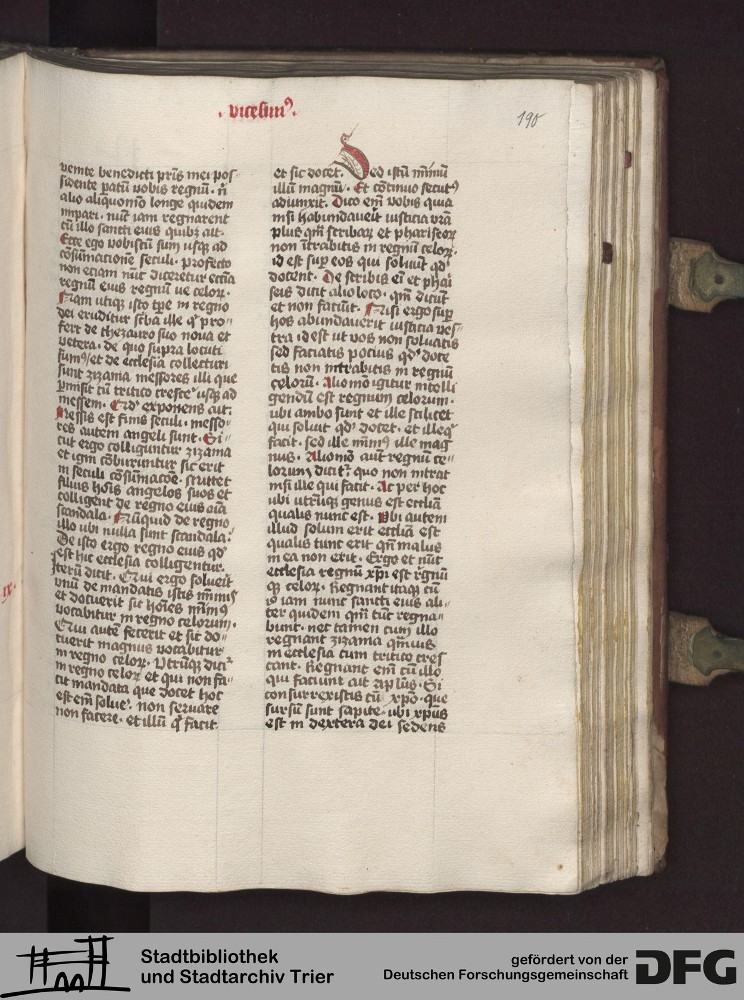 . vicesim9 .
190
venite benedicti pr̄is mei pos-
sidente ꝑatū vobis regnū. n̄
alio aliquomō longe quidem
impari. nūc iam regnarent
cū illo sancti eius quibꝫ ait.
Ecce ego vobiscū sum usqꝫ ad
cōsūmacione seculi. profecto
non eciam nūc diceretur eccīa
regnū eius regnū ve celoꝝ.
Nam utiqꝫ isto tp̄e in regno
dei eruditur sc̄ba ille qͥ pro-
fert de thezauro suo nova et
vetera. de quo supra locuti
sumꝰ/et de ecclesia collecturi
sunt zizania messores illi que
ꝑmisit cū tritico crescere usqꝫ ad
messem. Qd' exponens ait.
Messis est finis seculi. messo-
res autem angeli sunt. Si-
cut ergo colliguntur zizania
et igni cōburuntur sic erit
in seculi cōsūmacōe. mittet
filius hoīs angelos suos et
colligent de regno eius oīa
scandala. Nūquid de regno
illo ubi nulla sunt scandala.
De isto ergo regno eius qd'
est hic ecclesia colligentur.
Iterū dicit. Qui ergo solverit
unū de mandatis istis minimis
et docuerit sic hoīes minimꝰ
vocabitur in regno celorum.
Qui autē fecerit et sic do-
cuerit magnus vocabitur
in regno celoꝝ. Utrūqꝫ dicit
in regno celoꝝ et qui non fa-
cit mandata que docet hoc
est em̄ solue'. non servare
non facere. et illū qͥ facit
et sic docet. Sed istū minimū
illū magnū. Et cōtinuo secutꝰ
adiunxit. Dico em̄ vobis quia
nisi habundaverit iusticia vr̄a
plus qm̄ scribaꝝ et phariseoꝝ
non īntrabitis in regnū celoꝝ.
id est sup eos qui solūnt qd'
docent. De scribis em̄ et phai
seis dicit alio loco. qm̄ dicūt
et non faciūt. Nisi ergo sup
hos abundaverit iusticia ves-
tra id est ut vos non solvatis
sed faciatis pocius qd' doce
tis non intrabitis in regnū
celorū. Alio mō igitur intelli
gendū est regnum celorum.
ubi ambo sunt et ille scilicet
qui solvit qd' docet. et ille qͥ
facit. sed ille minimꝰ ille mag
nus. Alio mō aūt regnū ce-
lorum dicitr̄ quo non intrat
nisi ille qui facit. Ac per hoc
ubi utrūqꝫ genus est eccīiā
qualis nunc est. Ubi autem
illud solum erit eccīiā est
qualis tunc erit qn̄ malus
in ea non erit. Ergo et nūc
ecclesia regnū xp̄i est regnū
qꝫ celoꝝ. Regnant itaqꝫ cū
io iam nunc sancti eius ali-
ter quidem qm̄ tūc regna-
bunt. nec tamen cum illo
regnant zizania qm̄vis
in ecclesia cum tritico cres
cant. Regnant em̄ cū illo
qui faciunt ait ap̄lus. Si
consurrexistis cū xp̄o. que
sursū sunt sapite. ubi xp̄us
est in dextera dei sedens
ix.
Stadtbibliothek
und Stadtarchiv Trier
gefördert von der
Deutschen Forschungsgemeinschaft
DFG